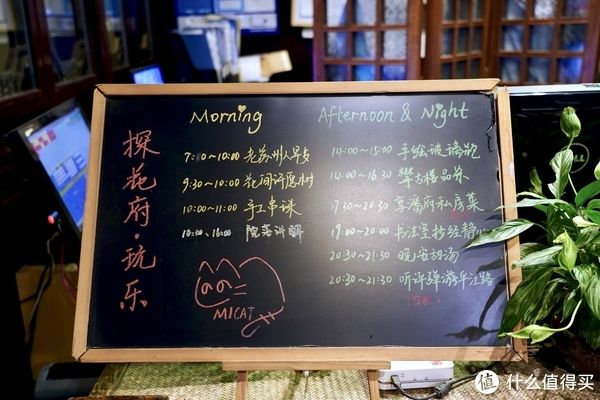 探花府·玩乐
Morning
7:00~10:00 老苏州人早点
9:30~10:00 花间许愿树
10:00~11:00 手工串珠
10:00、16:00 院落讲解
MICAT
Afternoon & Night
14:00~15:00 手绘玻璃瓶
14:00~16:30 攀古楼品茶
17:30~20:30 享潘府私房菜
19:00~20:00 书法堂抄经静心
20:30~21:30 晚安甜汤
20:30~21:30 听评弹游平江路
DELL
值 什么值得买